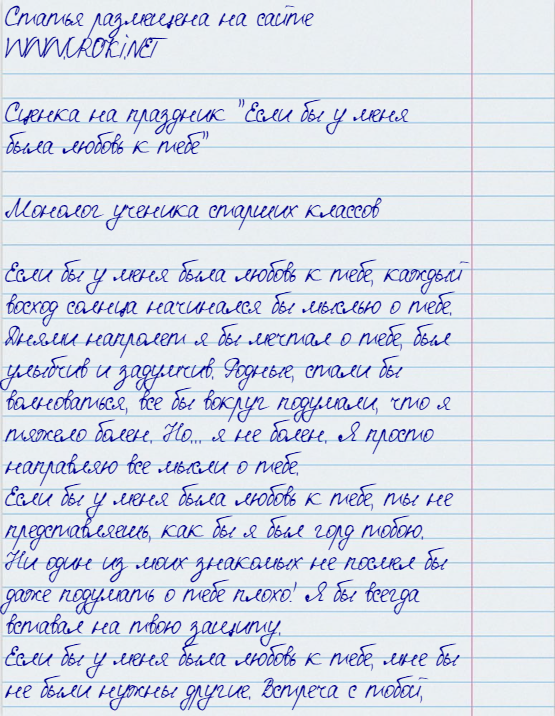 Статья размещена на сайте
WWW.UROKI.NET
Сценка на праздник "Если бы у меня
была любовь к тебе"
Монолог ученика старших классов
Если бы у меня была любовь к тебе, каждый
восход солнца начинался бы мыслью о тебе.
Днями напролет я бы мечтал о тебе, был
улыбчив и задумчив. Родные, стали бы
волноваться, все бы вокруг подумали, что я
тяжело болен. Но... я не болен. Я просто
направляю все мысли о тебе.
Если бы у меня была любовь к тебе, ты не
представляешь, как бы я был горд тобою.
Ни один из моих знакомых не посмел бы
даже подумать о тебе плохо! Я бы всегда
вставал на твою защиту.
Если бы у меня была любовь к тебе, мне бы
не были нужны другие. Встреча с тобой,